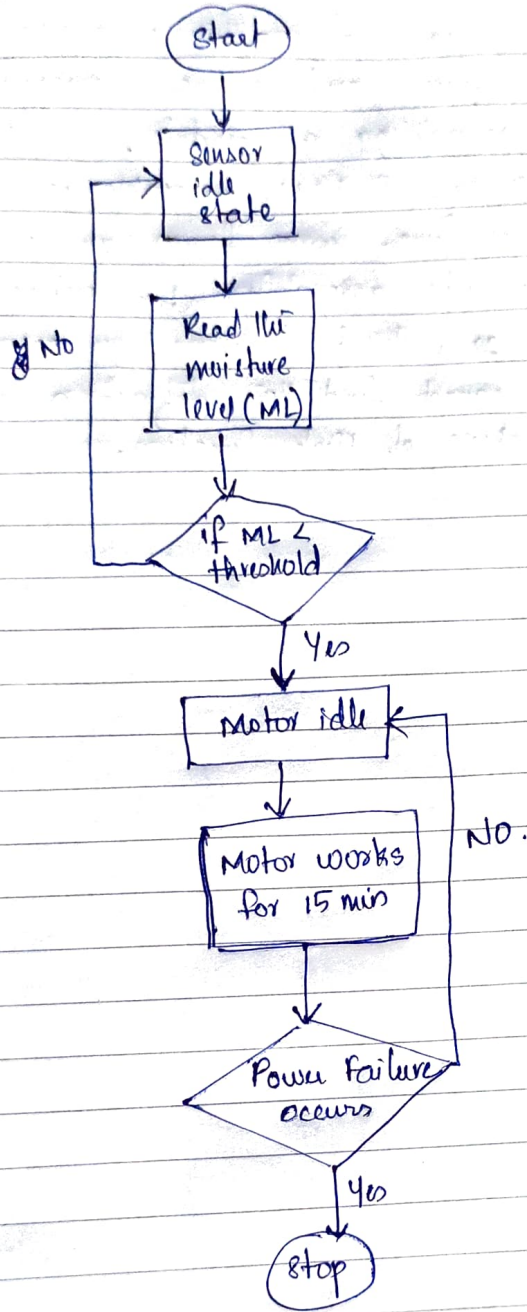 Start
Sensor
idle
state
Read the
moisture
level (ML)
No
if ML <
threshold
Yes
Motor idle
Motor works
for 15 min
NO.
Power Failure
occurs
Yes
Stop